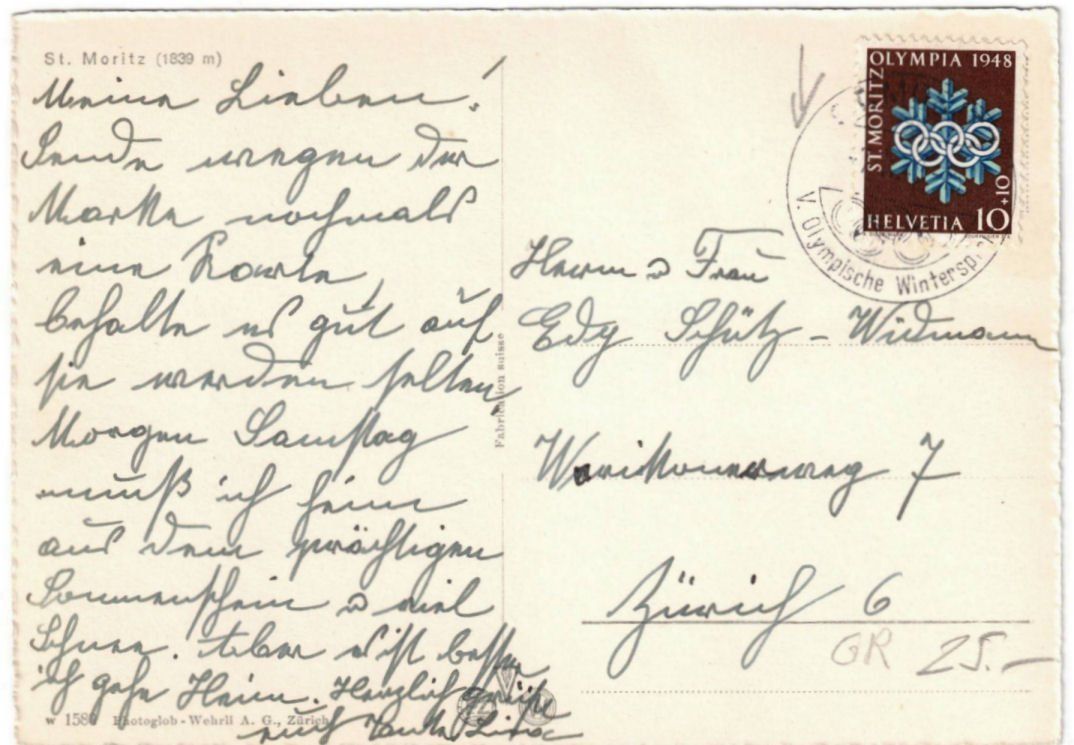 St. Moritz (1839 m)
Meine Lieben!
Sende wegen der
Marke nochmals
eine Karte,
behalte es gut auf
sie werden selten,
Morgen Samstag
muß ich heim
aus dem prächtigen
Sonnenschein & viel
Schnee. Aber es ist besser
ich gehe Heim. Herzlich grüßt
euch Tante Lina
w 158 Photoglob-Wehrli A. G., Zürich
Fabrication suisse
ST. MORITZ
OLYMPIA 1948
HELVETIA 10+10
V. Olympische Wintersp
Herrn & Frau
Edy Schütz - Widmann
Weriкonerweg 7
Zürich 6
GR 25.-